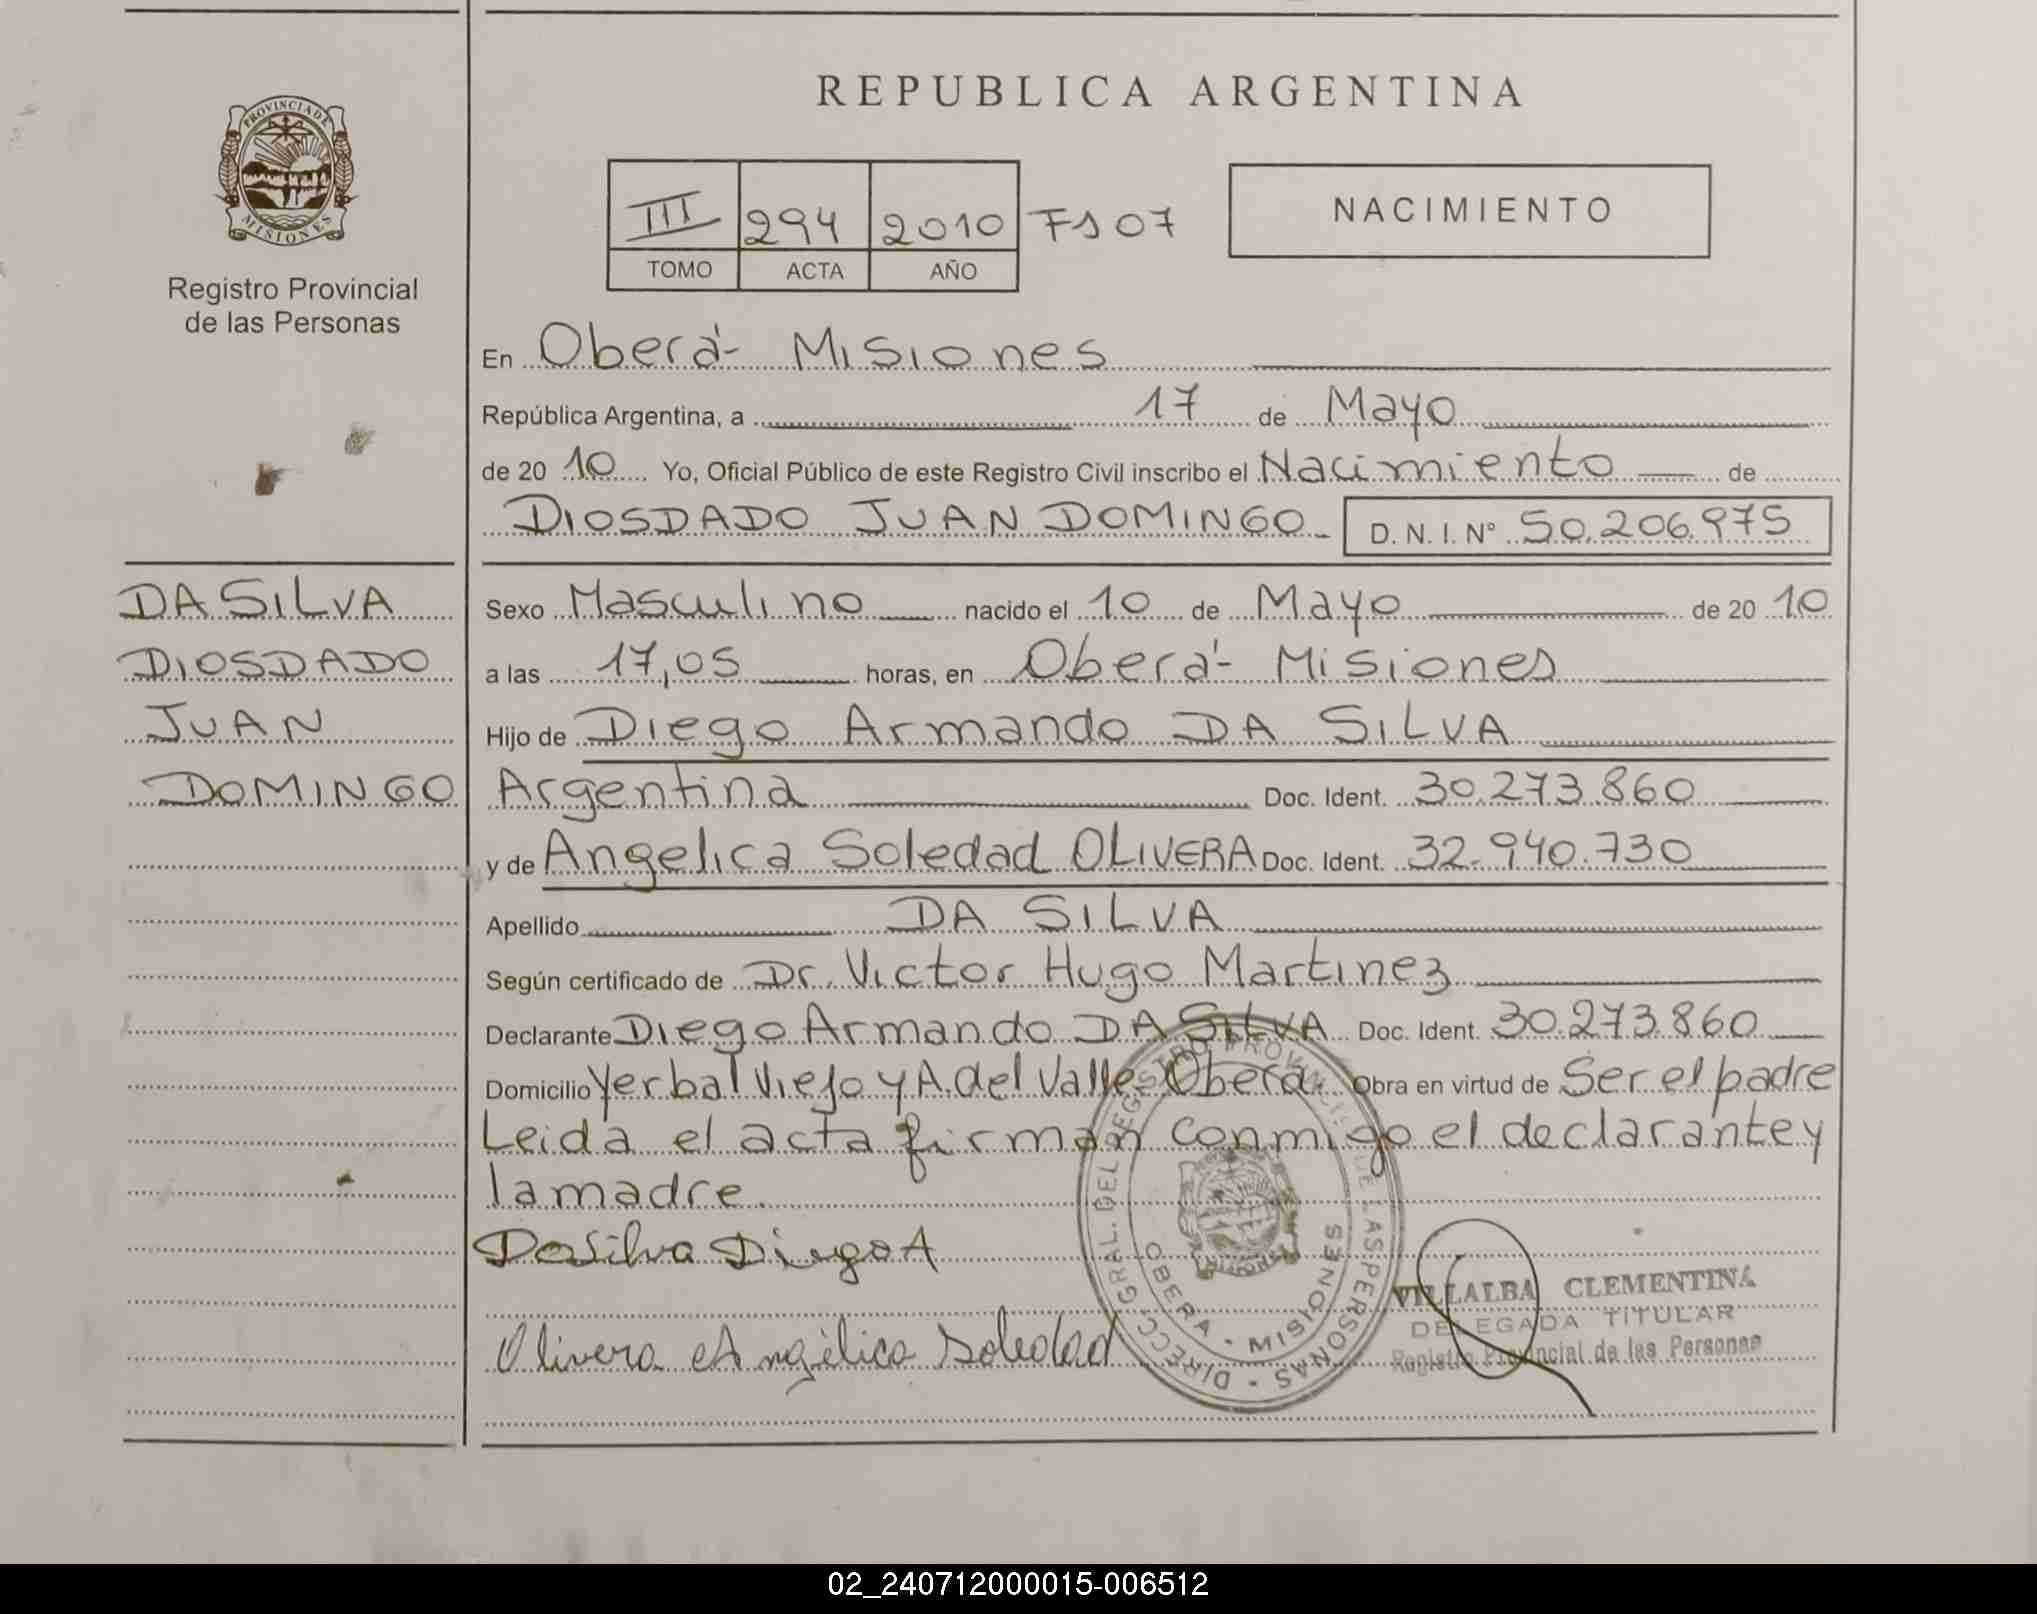 PROVINCIA DE
MISIONES
Registro Provincial
de las Personas
DA SILVA
DIOSDADO
JUAN
DOMINGO
REPUBLICA ARGENTINA
III 294 2010 FS 07
TOMO ACTA AÑO
NACIMIENTO
En Oberá- Misiones
República Argentina, a 17 de Mayo
de 20 10 Yo, Oficial Público de este Registro Civil inscribo el Nacimiento de
DIOSDADO JUAN DOMINGO D. N. I. Nº 50.206.975
Sexo Masculino nacido el 10 de Mayo de 20 10
a las 17,05 horas, en Oberá- Misiones
Hijo de Diego Armando DA SILVA
Argentina Doc. Ident. 30.273.860
y de Angelica Soledad OLIVERA Doc. Ident. 32.940.730
Apellido DA SILVA
Según certificado de Dr. Victor Hugo Martinez
Declarante Diego Armando DA SILVA Doc. Ident. 30.273.860
Domicilio Yerbal Viejo y A. del Valle Oberá. Obra en virtud de Ser el padre
Leida el acta firman conmigo el declarante y
la madre.
Da Silva Diego A
Olivera Angélica Soledad
DIRECC. GRAL. DEL REGISTRO PROVINCIAL DE LAS PERSONAS
OBERA - MISIONES
VILLALBA CLEMENTINA
DELEGADA TITULAR
Registro Provincial de las Personas
02_240712000015-006512